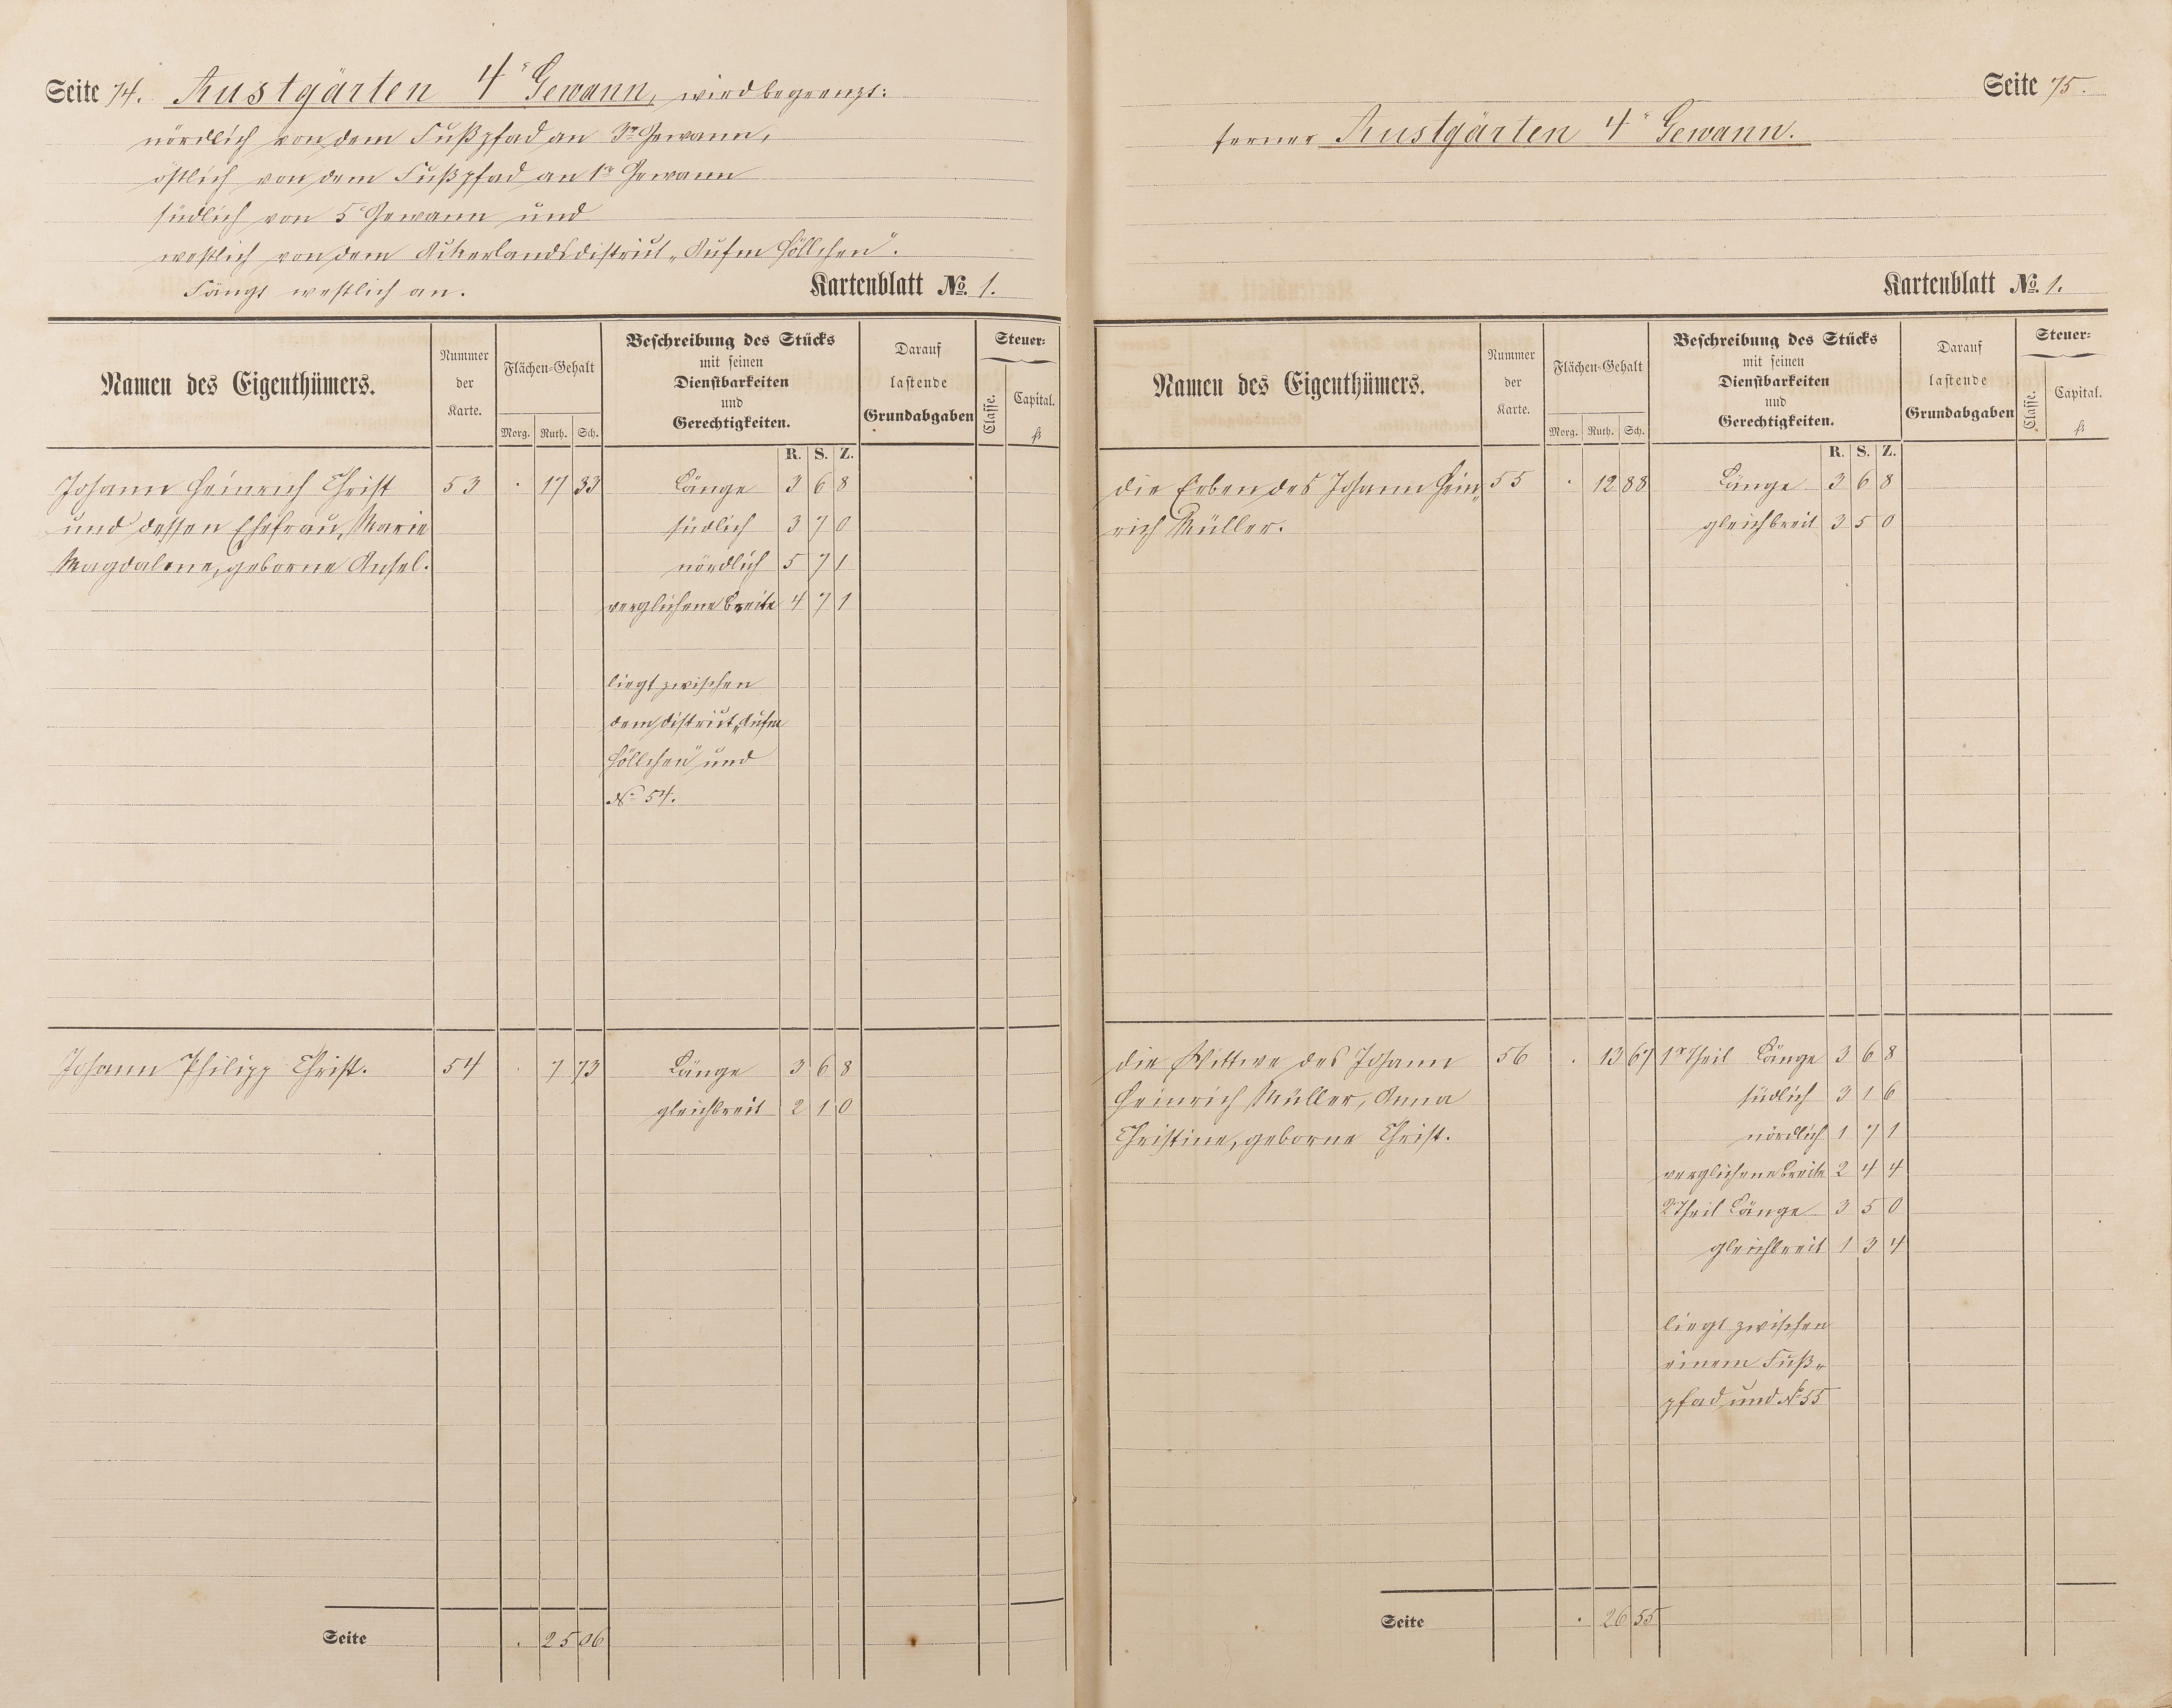 Seite 74. Rustgärten 4te Gewann, wird begrenzt:
nördlich von dem Fußpfad an 3r Gewann,
östlich von dem Fußpfad an 1r Gewann
südlich von 5 Gewann und
westlich von dem Ackerlandsdistrict „Aufm Höllchen“.
Fängt westlich an.
Kartenblatt No. 1.
Namen des Eigenthümers.
Nummer der Karte.
Flächen-Gehalt
Morg. Ruth. Sch.
Beschreibung des Stücks
mit seinen
Dienstbarkeiten
und
Gerechtigkeiten.
Darauf
lastende
Grundabgaben
Steuer-
Classe.
Capital.
fl
R. S. Z.
Johann Heinrich Christ 53 . 17 33 Länge 3 6 8
und dessen Ehefrau, Marie südlich 3 7 0
Magdalene, geborne Ansel. nördlich 5 7 1
verglichene Breite 4 7 1
liegt zwischen
dem District „Aufm
Höllchen“ und
No 54.
Johann Philipp Christ. 54 . 7 73 Länge 3 6 8
gleichbreit 2 1 0
Seite . 25 06
Seite 75.
ferner Rustgärten 4te Gewann.
Kartenblatt No. 1.
Namen des Eigenthümers.
Nummer der Karte.
Flächen-Gehalt
Morg. Ruth. Sch.
Beschreibung des Stücks
mit seinen
Dienstbarkeiten
und
Gerechtigkeiten.
Darauf
lastende
Grundabgaben
Steuer-
Classe.
Capital.
fl
R. S. Z.
die Erben des Johann Hein- 55 . 12 88 Länge 3 6 8
rich Müller. gleichbreit 3 5 0
die Wittwe des Johann 56 . 13 67 1r Theil Länge 3 6 8
Heinrich Müller, Anna südlich 3 1 6
Christine, geborne Christ. nördlich 1 7 1
verglichene Breite 2 4 4
2 Theil Länge 3 5 0
gleichbreit 1 3 4
liegt zwischen
einem Fuß-
pfad und No 55
Seite . 26 55